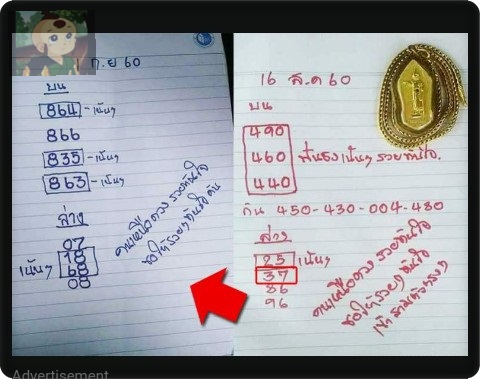 1 ก.ย 60
บน
864 - เน้นๆ
866
835 - เน้นๆ
863 - เน้นๆ
ล่าง
07
18
เน้นๆ 68
08
คนเหนือดวง รวยทันใจ
ขอให้รวยๆ ทันใจ
16 ส.ค 60
บน
490
460 ฟันธง เน้นๆ รวยทันใจ.
440
กัน 450-430-004-480
ล่าง
25 เน้นๆ
37
86
96
คนเหนือดวง รวยทันใจ
ขอให้รวยๆ ทันใจ
เข้า ตรงๆ
Advertisement